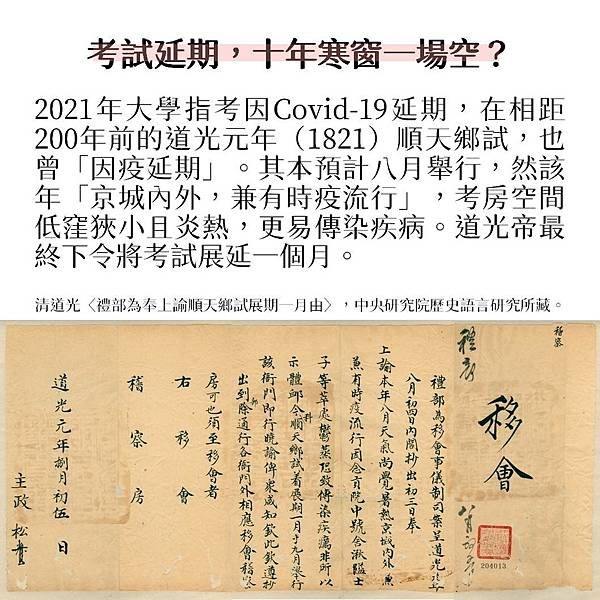 考試延期，十年寒窗一場空？
2021年大學指考因Covid-19延期，在相距
200年前的道光元年（1821）順天鄉試，也
曾「因疫延期」。其本預計八月舉行，然該
年「京城內外，兼有時疫流行」，考房空間
低窪狹小且炎熱，更易傳染疾病。道光帝最
終下令將考試展延一個月。
清道光〈禮部為奉上諭順天鄉試展期一月由〉，中央研究院歷史語言研究所藏。
稽察
禮房
移會
204013
禮部為移會事儀制司案呈道光元年
八月初四日內閣抄出初三日奉
上諭本年八月天氣尚覺暑熱京城內外兼
兼有時疫流行因念貢院中號舍湫隘士
子等萃處鬱蒸恐致傳染疾癘非所以
示體卹今科順天鄉試着展期一月于九月舉行
該衙門即行曉諭俾衆咸知欽此欽遵抄
出到部除通行各衙門外相應移會稽察
房可也須至移會者
右移會
稽察房
道光元年捌月初伍日
主政松